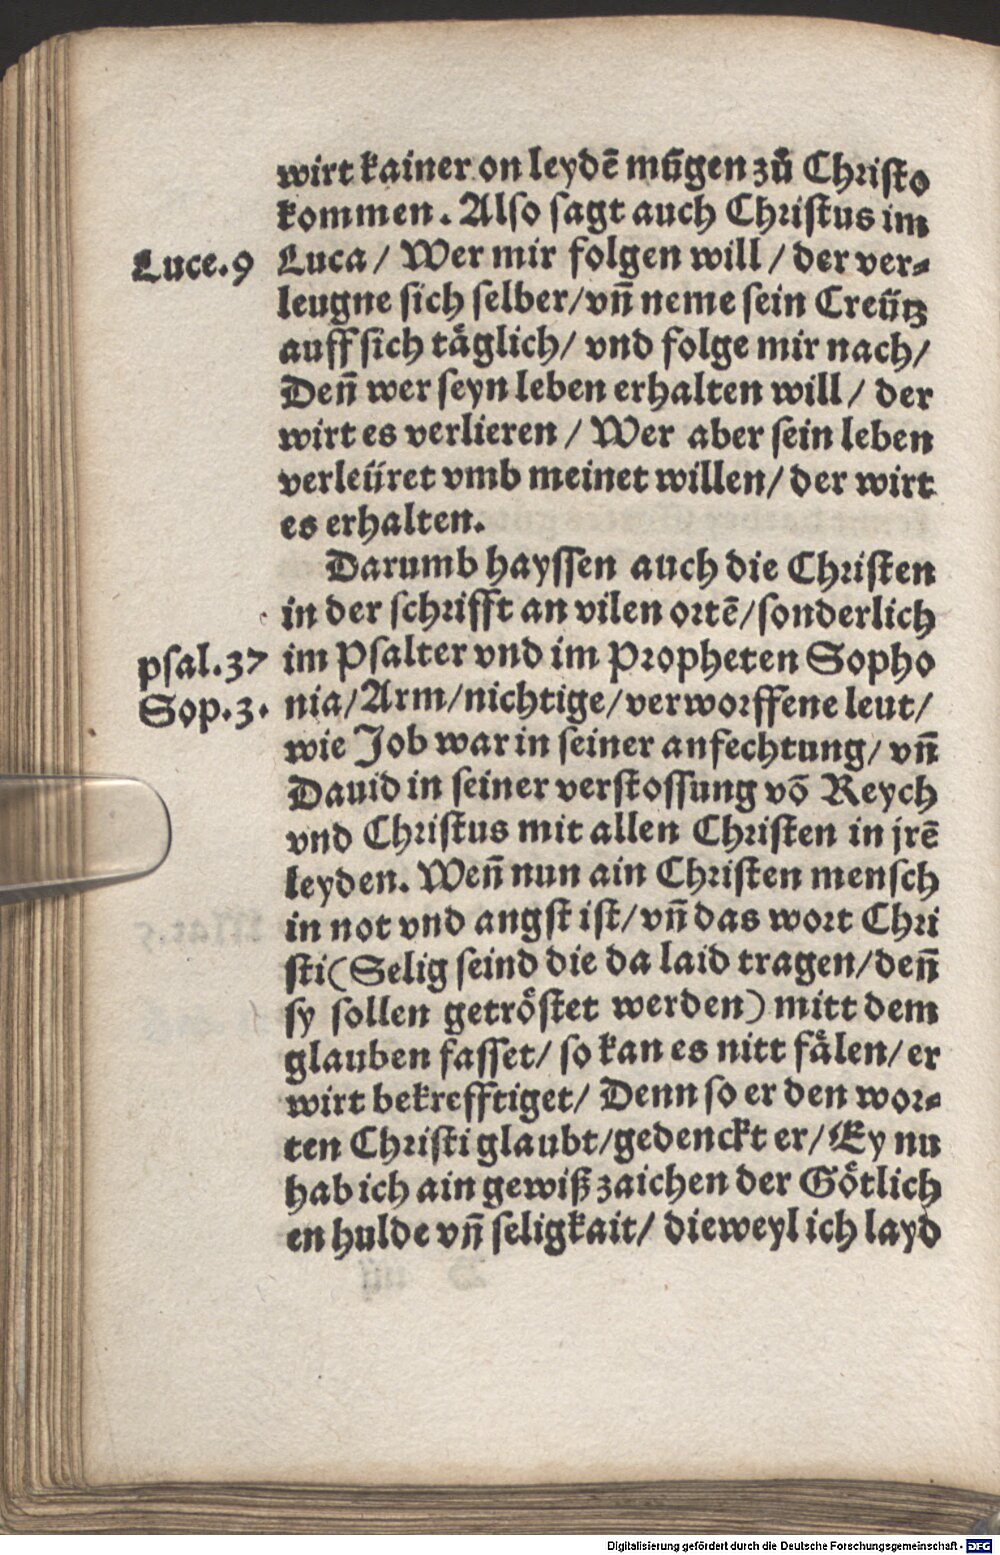 wirt kainer on leydē mügen zů Christo
kommen. Also sagt auch Christus im
Luce. 9 Luca / Wer mir folgen will / der ver-
leugne sich selber / vn̄ neme sein Creütz
auff sich täglich / vnd folge mir nach /
Den̄ wer seyn leben erhalten will / der
wirt es verlieren / Wer aber sein leben
verleüret vmb meinet willen / der wirt
es erhalten.
Darumb hayssen auch die Christen
in der schrifft an vilen ortē / sonderlich
psal. 37 im Psalter vnd im Propheten Sopho
Sop. 3. nia / Arm / nichtige / verworffene leut /
wie Job war in seiner anfechtung / vn̄
Dauid in seiner verstossung vō Reych
vnd Christus mit allen Christen in jrē
leyden. Wen̄ nun ain Christen mensch
in not vnd angst ist / vn̄ das wort Chri
sti (Selig seind die da laid tragen / den̄
sy sollen getröstet werden) mitt dem
glauben fasset / so kan es nitt fälen / er
wirt bekrefftiget / Denn so er den wor-
ten Christi glaubt / gedenckt er / Ey nu
hab ich ain gewiß zaichen der Götlich
en hulde vn̄ seligkait / dieweyl ich layd
Digitalisierung gefördert durch die Deutsche Forschungsgemeinschaft - DFG